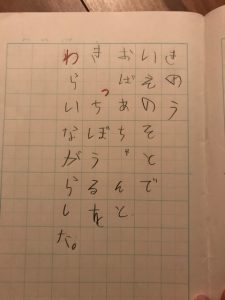 きのう
いえのそとで
おばあちゃんと
きっちぼうるを
わらいながらした。